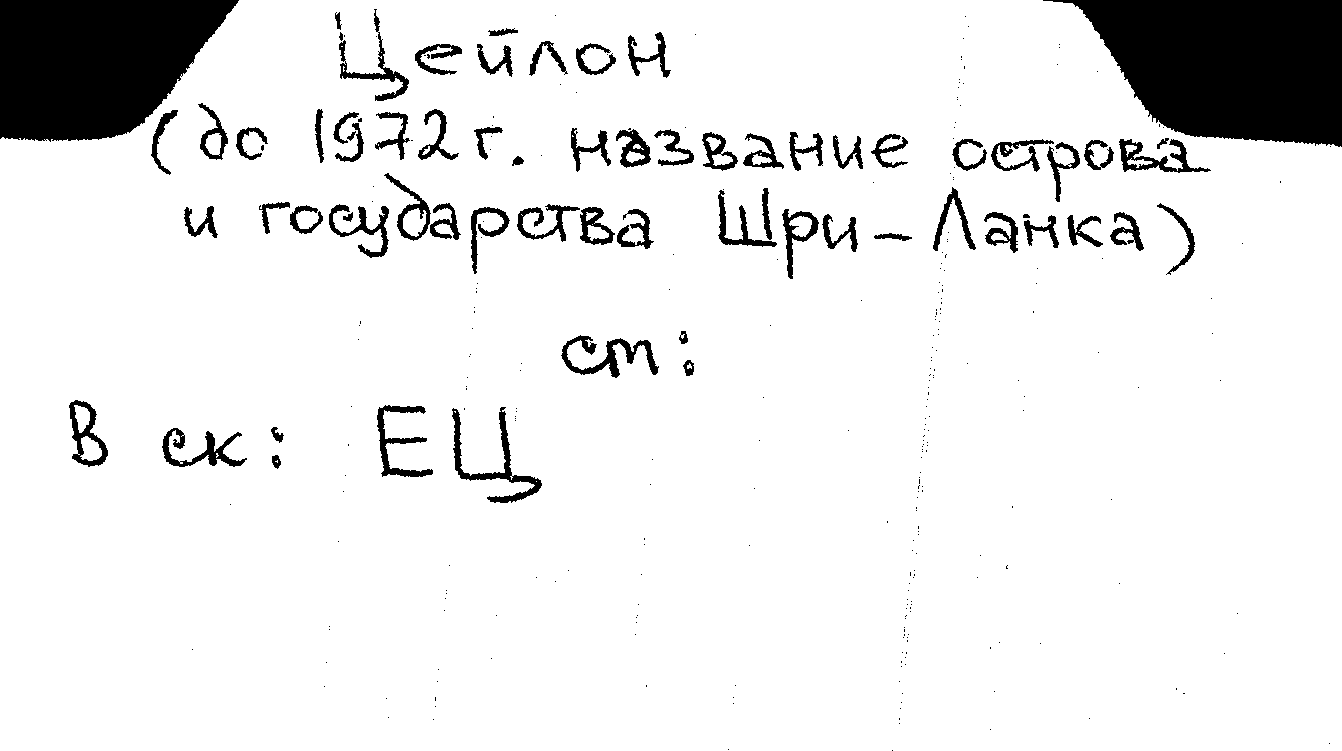 Цейлон
(до 1972 г. название острова
и государства Шри-Ланка)
ст:
В ск: ЕЦ